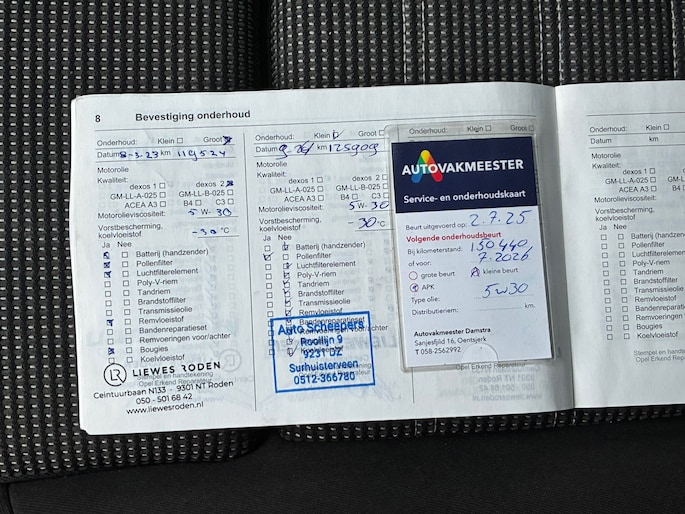 8 Bevestiging onderhoud
Onderhoud: Klein Groot
Datum km
Motorolie
Kwaliteit:
dexos 1 dexos 2
GM-LL-A-025 GM-LL-B-025
ACEA A3 B4 C3
Motorolieviscositeit: 5 W-30
Vorstbescherming,
koelvloeistof -30 °C
Ja Nee
Batterij (handzender)
Pollenfilter
Luchtfilterelement
Poly-V-riem
Tandriem
Brandstoffilter
Transmissieolie
Remvloeistof
Bandenreparatieset
Remvoeringen voor/achter
Bougies
Koelvloeistof
Stempel en handtekening
Opel Erkend Reparateur
LR LIEWES RODEN
Ceintuurbaan N133 - 9301 NT Roden
050 - 501 68 42
www.liewesroden.nl
Onderhoud: Klein Groot
Datum km 125909
Motorolie
Kwaliteit:
dexos 1 dexos 2
GM-LL-A-025 GM-LL-B-025
ACEA A3 B4 C3
Motorolieviscositeit: 5 W-30
Vorstbescherming,
koelvloeistof -30 °C
Ja Nee
Batterij (handzender)
Pollenfilter
Luchtfilterelement
Poly-V-riem
Tandriem
Brandstoffilter
Transmissieolie
Remvloeistof
Bandenreparatieset
voor/achter
Auto Scheepers
Roolijn 9
9231 DZ
Surhuisterveen
0512-366780
Opel Erkend Reparateur
Onderhoud: Klein Groot
AUTOVAKMEESTER
Service- en onderhoudskaart
Beurt uitgevoerd op: 2.7.25
Volgende onderhoudsbeurt
Bij kilometerstand: 150.440
of voor: 7.2026
grote beurt kleine beurt
APK
Type olie: 5w30
Distributieriem: km.
Autovakmeester Damstra
Sanjesfjild 16, Oentsjerk
T 058-2562992
Opel Erkend Reparateur
Onderhoud:
Datum
Motorolie
Kwaliteit:
dexos 1
GM-LL-A-025
ACEA A3
Motorolieviscositeit:
Vorstbescherming,
koelvloeistof
Ja Nee
Batterij (
Pollenfilter
Luchtfilter
Poly-V-riem
Tandriem
Brandstof
Transmiss
Remvloeis
Bandenrep
Remvoerin
Bougies
Koelvloeist
Stempel en
Opel Erkend